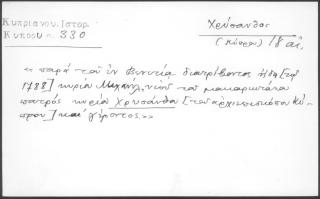 Κυπριανού. Ιστορ.
Κύπρου σ. 330
Χρύσανθος
(Κύπρου) 18 αἰ.
«παρὰ τοῦ ἐν Βενετίᾳ διατρίβοντος ἤδη [τῷ
1788] κυρίου Μιχαήλ, υἱοῦ τοῦ μακαριωτάτου
πατρὸς κυρίου Χρυσάνθου [τοῦ ἀρχιεπισκόπου Κύ-
πρου] καὶ γέροντος.»